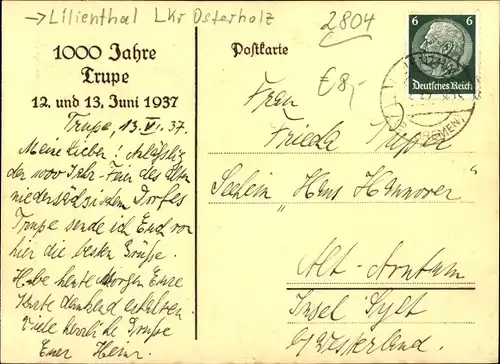 → Lilienthal LKr Osterholz
2804
1000 Jahre
Trupe
12. und 13. Juni 1937
Postkarte
€ 8,-
6 6
Deutsches Reich
BREMEN
Trupe, 13.VI.37.
Meine Lieben! Anläßlich
der 1000 Jahr-Feier des alten
niedersächsischen Dorfes
Trupe sende ich Euch von
hier die besten Grüße.
Habe heute Morgen Eure
Karte dankend erhalten.
Viele herzliche Grüße
Euer Hein.
Frau
Frieda
"Haus Hannover"
Alt-
Insel Sylt
b/ Westerland.